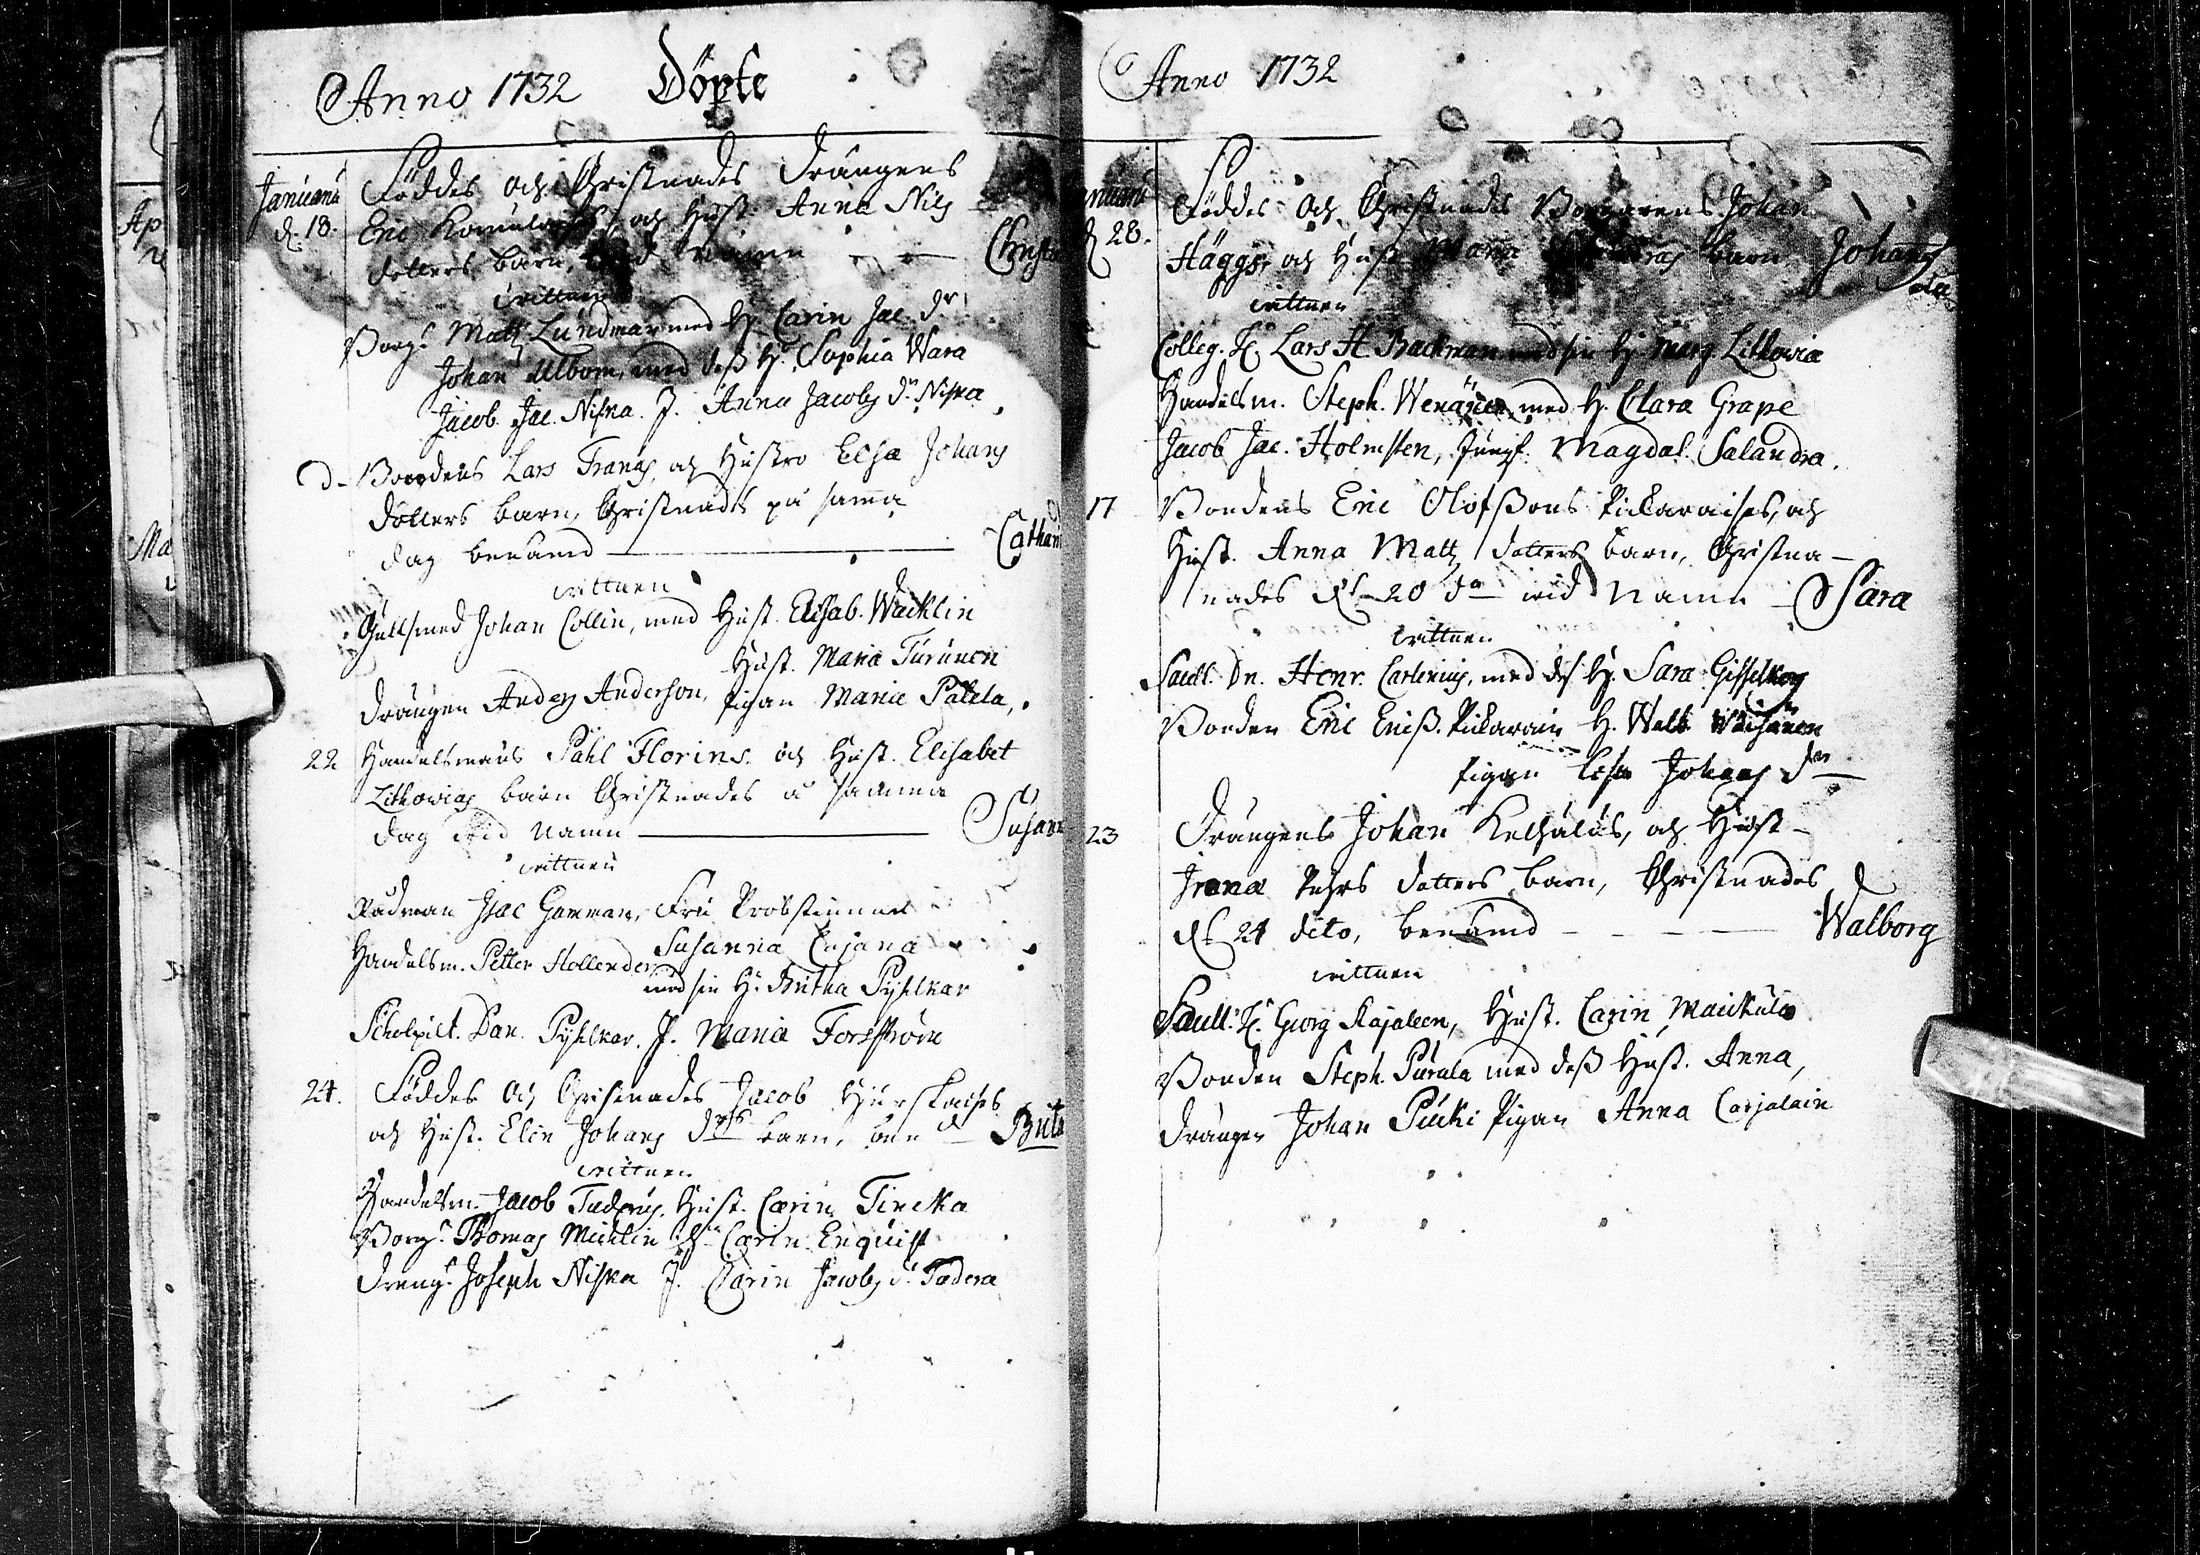 Anno 1732 Döpte
Januarii Föddes och Christnades Drängens
d. 18. Eric och Hust. Anna Nils
dotters barn, wid namn Christi
wittnen
Borg. Matts Lundmar med H. Carin Jac. dr.
Johan Ulbom, med dess H. Sophia Wara
Jacob Jac. Niska. J. Anna Jacobs dr. Niska
d. Bondens Lars Frans, och Hustro Elsa Johans
dotters barn, Christnades på samma
dag benämd Cathari
wittnen
Gullsmed Johan Collin, med Hust. Elisab. Wacklin
Hust. Maria Turunen
Drängen Anders Anderson, Pigan Maria Palola,
22 Handelsmans Påhl Florins och Hust. Elisabet
Lithovias barn Christnades å samma
dag wid namn Susann
wittnen
Rådman Isac Gamman, Fru Probstinnan
Susanna Cajana
Handelsm. Petter Hollender
med sin H. Britha Pyhlkar
Scholpilt. Dan. Pyhlkar. J. Maria Forsström
24. Föddes och Christnades Jacob
och Hust. Elin Johans drs barn, ben Brita
wittnen
Handelsm. Jacob Tuderus, Hust. Carin Tincka
Borg. Thomas Micklin Carin Enquist
Dreng Joseph Niska J. Carin Jacobs d. Tudera
Anno 1732
Januarii Föddes Och Christnades Borgarens Johan
d. 28. Häggs, och Hust. Maria barn Johannes
wittnen
Colleg. H. Lars H. Backman med sin H. Marg. Lithovia
Handelsm. Steph. med H. Clara Grape
Jacob Jac. Holmsten, Jungf. Magdal. Salandra.
17 Bondens Eric Olofssons och
Hust. Anna Matts dotters barn, Christna-
nades d. 20 wid Namn Sara
wittnen
Sacell. Dn. Henr. Carlenius, med dess H. Sara
Bonden Eric Erics. H. Walb.
Pigan Johans dr
23 Drängens Johan och Hust
Irena Pehrs dotters barn, Christnades
d. 24 dito, benämd Walborg
wittnen
Sacell. H. Georg Rajaleen, Hust. Carin Maickula
Bonden Steph. Purala med dess Hust. Anna,
Drängen Johan Piuki Pigan Anna Carjalain